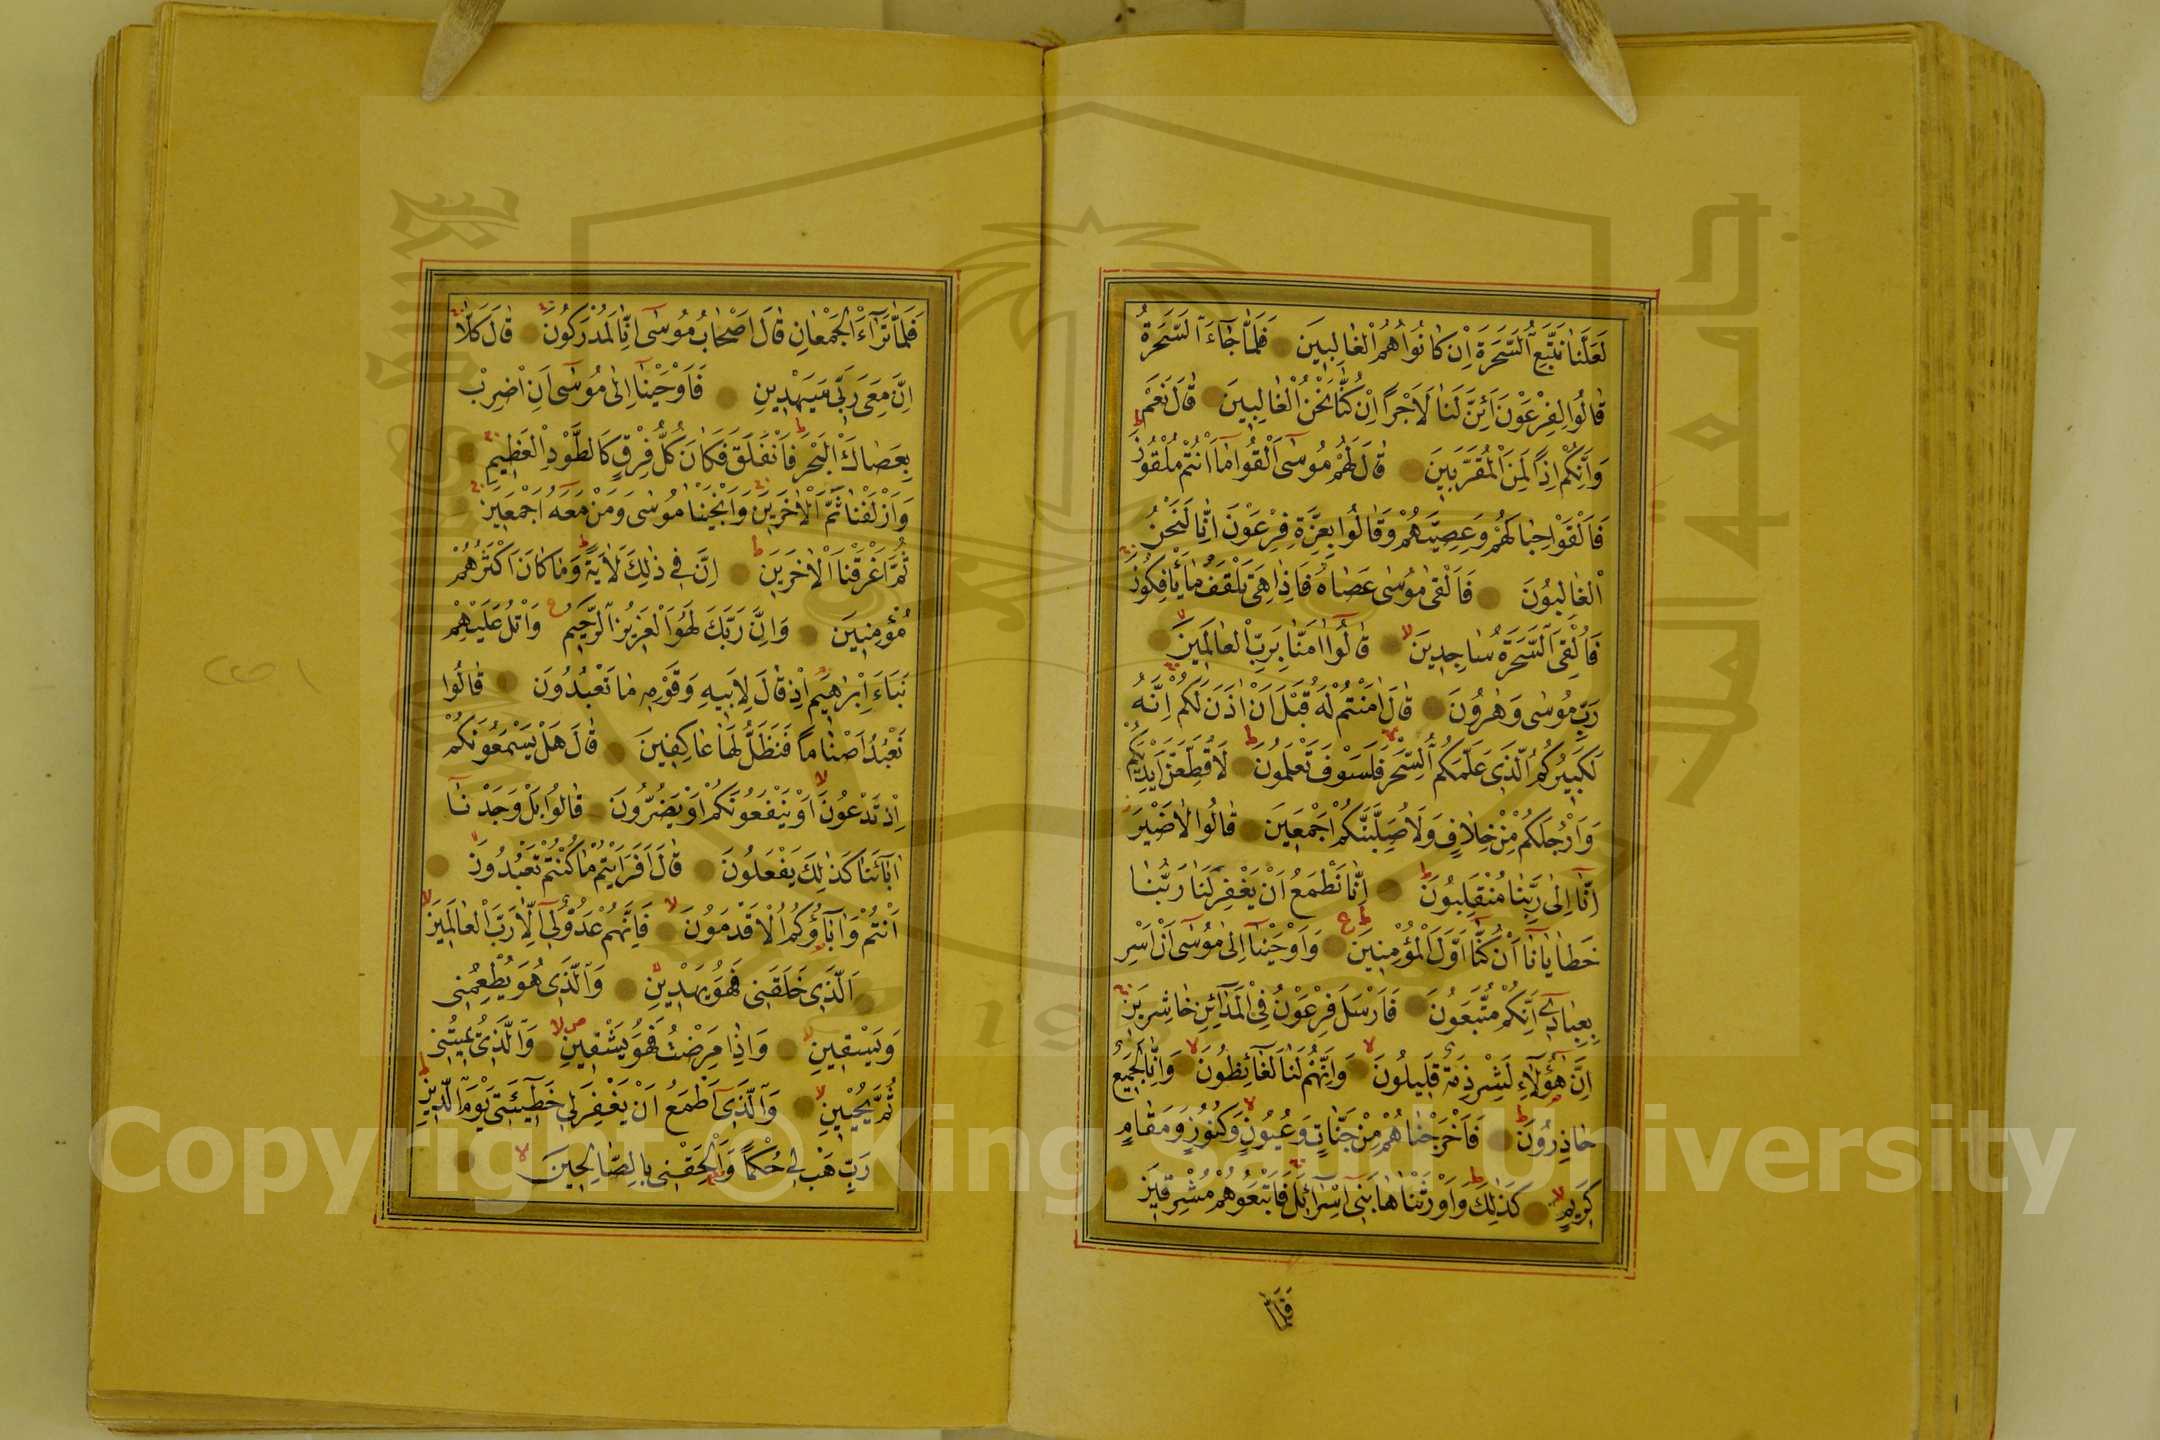 لَعَلَّنَا نَتَّبِعُ السَّحَرَةَ اِنْ كَانُوا هُمُ الْغَالِبِينَ فَلَمَّا جَآءَ السَّحَرَةُ
قَالُوا لِفِرْعَوْنَ اَئِنَّ لَنَا لَاَجْرًا اِنْ كُنَّا نَحْنُ الْغَالِبِينَ قَالَ نَعَمْ
وَاِنَّكُمْ اِذًا لَمِنَ الْمُقَرَّبِينَ قَالَ لَهُمْ مُوسٰى اَلْقُوا مَا اَنْتُمْ مُلْقُونَ
فَاَلْقَوْا حِبَالَهُمْ وَعِصِيَّهُمْ وَقَالُوا بِعِزَّةِ فِرْعَوْنَ اِنَّا لَنَحْنُ
الْغَالِبُونَ فَاَلْقٰى مُوسٰى عَصَاهُ فَاِذَا هِيَ تَلْقَفُ مَا يَأْفِكُونَ
فَاُلْقِيَ السَّحَرَةُ سَاجِدِينَ قَالُوا اٰمَنَّا بِرَبِّ الْعَالَمِينَ
رَبِّ مُوسٰى وَهٰرُونَ قَالَ اٰمَنْتُمْ لَهُ قَبْلَ اَنْ اٰذَنَ لَكُمْ اِنَّهُ
لَكَبِيرُكُمُ الَّذِي عَلَّمَكُمُ السِّحْرَ فَلَسَوْفَ تَعْلَمُونَ لَاُقَطِّعَنَّ اَيْدِيَكُمْ
وَاَرْجُلَكُمْ مِنْ خِلَافٍ وَلَاُصَلِّبَنَّكُمْ اَجْمَعِينَ قَالُوا لَا ضَيْرَ
اِنَّا اِلٰى رَبِّنَا مُنْقَلِبُونَ اِنَّا نَطْمَعُ اَنْ يَغْفِرَ لَنَا رَبُّنَا
خَطَايَانَا اَنْ كُنَّا اَوَّلَ الْمُؤْمِنِينَ وَاَوْحَيْنَا اِلٰى مُوسٰى اَنْ اَسْرِ
بِعِبَادِي اِنَّكُمْ مُتَّبَعُونَ فَاَرْسَلَ فِرْعَوْنُ فِي الْمَدَائِنِ حَاشِرِينَ
اِنَّ هٰؤُلَاءِ لَشِرْذِمَةٌ قَلِيلُونَ وَاِنَّهُمْ لَنَا لَغَائِظُونَ وَاِنَّا لَجَمِيعٌ
حَاذِرُونَ فَاَخْرَجْنَاهُمْ مِنْ جَنَّاتٍ وَعُيُونٍ وَكُنُوزٍ وَمَقَامٍ
كَرِيمٍ كَذٰلِكَ وَاَوْرَثْنَاهَا بَنِي اِسْرَآئِلَ فَاَتْبَعُوهُمْ مُشْرِقِينَ
فَلَمَّا
فَلَمَّا تَرَاءَ الْجَمْعَانِ قَالَ اَصْحَابُ مُوسٰى اِنَّا لَمُدْرَكُونَ قَالَ كَلَّا
اِنَّ مَعِيَ رَبِّي سَيَهْدِينِ فَاَوْحَيْنَا اِلٰى مُوسٰى اَنِ اضْرِبْ
بِعَصَاكَ الْبَحْرَ فَانْفَلَقَ فَكَانَ كُلُّ فِرْقٍ كَالطَّوْدِ الْعَظِيمِ
وَاَزْلَفْنَا ثَمَّ الْاٰخَرِينَ وَاَنْجَيْنَا مُوسٰى وَمَنْ مَعَهُ اَجْمَعِينَ
ثُمَّ اَغْرَقْنَا الْاٰخَرِينَ اِنَّ فِي ذٰلِكَ لَاٰيَةً وَمَا كَانَ اَكْثَرُهُمْ
مُؤْمِنِينَ وَاِنَّ رَبَّكَ لَهُوَ الْعَزِيزُ الرَّحِيمُ وَاتْلُ عَلَيْهِمْ
نَبَاَ اِبْرٰهِيمَ اِذْ قَالَ لِاَبِيهِ وَقَوْمِهِ مَا تَعْبُدُونَ قَالُوا
نَعْبُدُ اَصْنَامًا فَنَظَلُّ لَهَا عَاكِفِينَ قَالَ هَلْ يَسْمَعُونَكُمْ
اِذْ تَدْعُونَ اَوْ يَنْفَعُونَكُمْ اَوْ يَضُرُّونَ قَالُوا بَلْ وَجَدْنَا
اٰبَآءَنَا كَذٰلِكَ يَفْعَلُونَ قَالَ اَفَرَاَيْتُمْ مَا كُنْتُمْ تَعْبُدُونَ
اَنْتُمْ وَاٰبَآؤُكُمُ الْاَقْدَمُونَ فَاِنَّهُمْ عَدُوٌّ لِي اِلَّا رَبَّ الْعَالَمِينَ
اَلَّذِي خَلَقَنِي فَهُوَ يَهْدِينِ وَالَّذِي هُوَ يُطْعِمُنِي
وَيَسْقِينِ وَاِذَا مَرِضْتُ فَهُوَ يَشْفِينِ وَالَّذِي يُمِيتُنِي
ثُمَّ يُحْيِينِ وَالَّذِي اَطْمَعُ اَنْ يَغْفِرَ لِي خَطِيئَتِي يَوْمَ الدِّينِ
رَبِّ هَبْ لِي حُكْمًا وَاَلْحِقْنِي بِالصَّالِحِينَ
Copyright © King Saud University